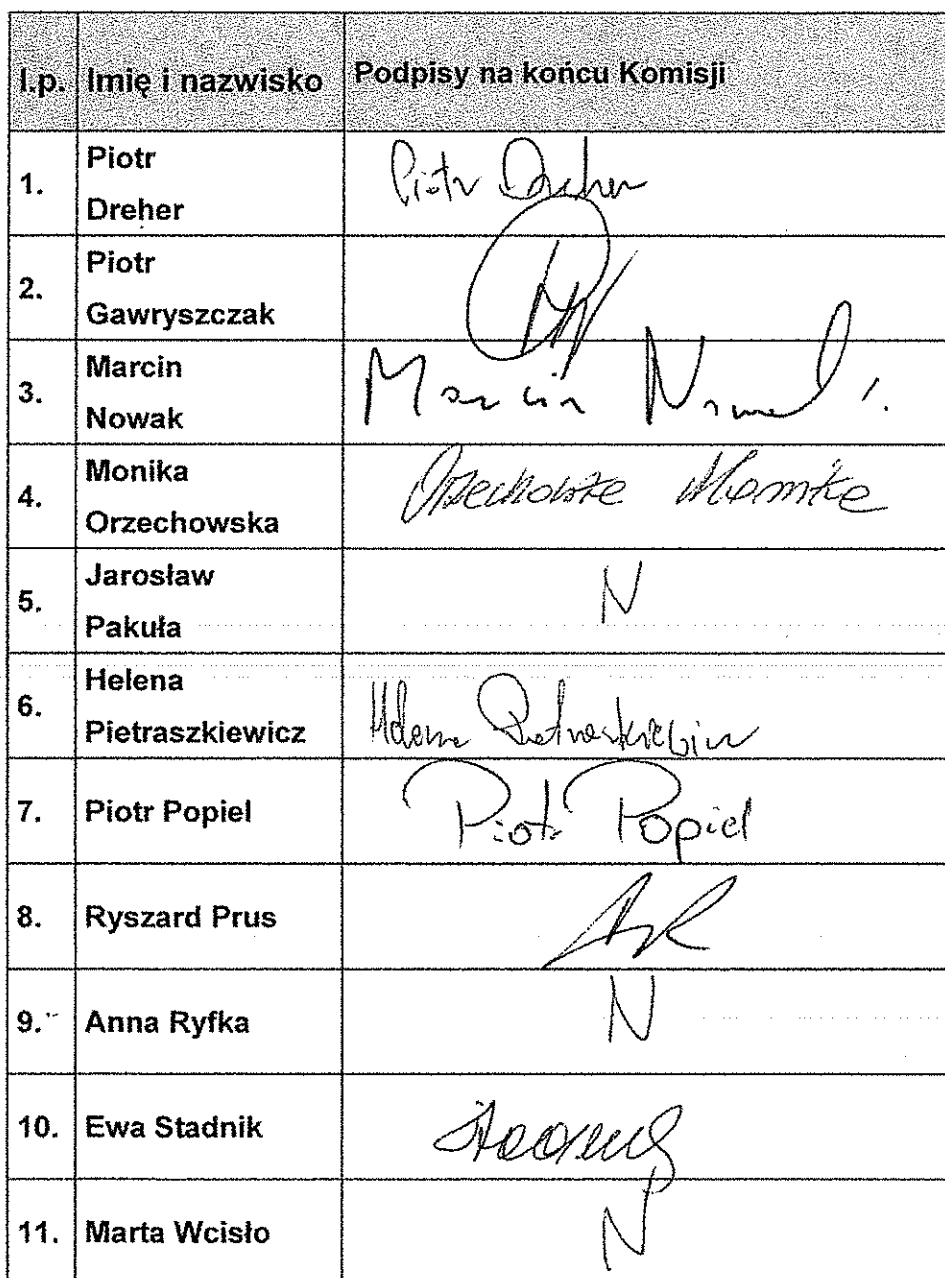 l.p. Imię i nazwisko Podpisy na końcu Komisji
1. Piotr Dreher Piotr Dreher
2. Piotr Gawryszczak
3. Marcin Nowak Marcin Nowak
4. Monika Orzechowska Orzechowska Monika
5. Jarosław Pakuła N
6. Helena Pietraszkiewicz Helena Pietraszkiewicz
7. Piotr Popiel Piotr Popiel
8. Ryszard Prus
9. Anna Ryfka N
10. Ewa Stadnik
11. Marta Wcisło N